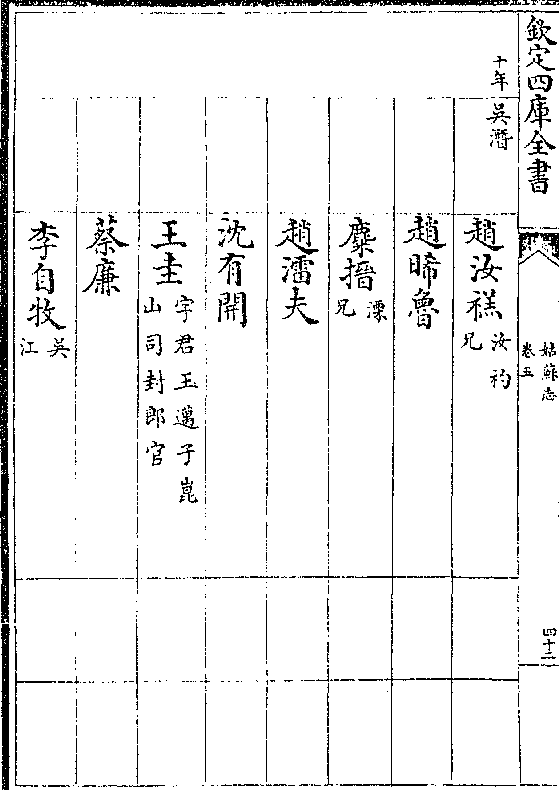 欽定四庫全書
姑蘇志
卷五
四十二
十年 吳潛
趙汝禚 汝礿兄
趙晞魯
麋搢 溧兄
趙㵙夫
沈有開
王圭 字君玉邁子崑山司封郎官
蔡廉
李自牧 吳江